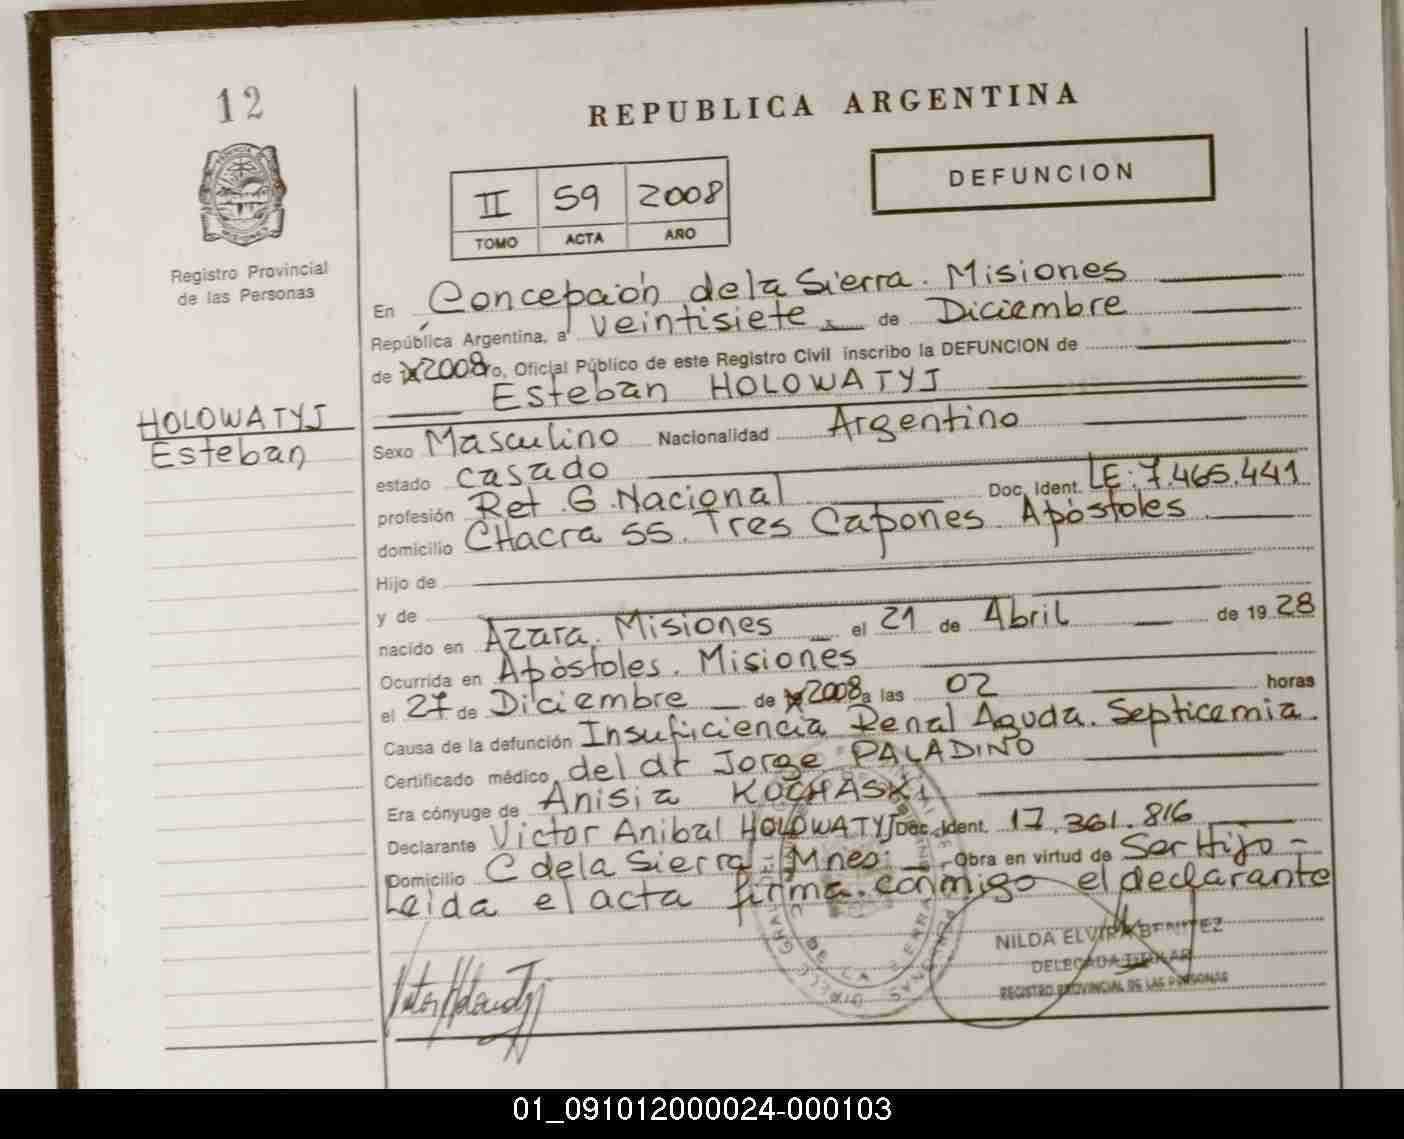 12
REPUBLICA ARGENTINA
DEFUNCION
II 59 2008
TOMO ACTA AÑO
Registro Provincial
de las Personas
En Concepción de la Sierra. Misiones
República Argentina, a veintisiete de Diciembre
de 2008 o, Oficial Público de este Registro Civil inscribo la DEFUNCION de
Esteban HOLOWATYJ
HOLOWATYJ
Esteban
Sexo Masculino Nacionalidad Argentino
estado casado
profesión Ret. G. Nacional Doc. Ident. LE: 7.465.441
domicilio CHacra 55. Tres Capones Apóstoles
Hijo de
y de
nacido en Azara. Misiones el 21 de Abril de 19 28
Ocurrida en Apóstoles. Misiones
el 27 de Diciembre de 2008 a las 02 horas
Causa de la defunción Insuficiencia Renal Aguda. Septicemia.
Certificado médico del dr Jorge PALADINO
Era cónyuge de Anisia KOCHASKI
Declarante Victor Anibal HOLOWATYJ Doc. Ident. 17.361.816
Domicilio C de la Sierra Mnes. Obra en virtud de Ser Hijo -
Leida el acta firma conmigo el declarante
NILDA ELVIRA BENITEZ
DELEGADA TITULAR
REGISTRO PROVINCIAL DE LAS PERSONAS
01_091012000024-000103